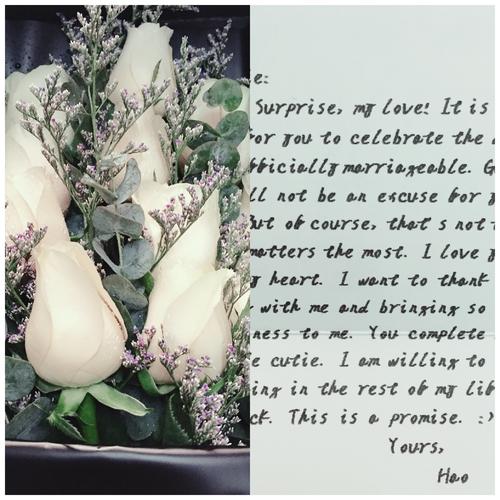 e:
Surprise, my love! It is
for you to celebrate the
officially marriageable.
not be an excuse for
But of course, that's not
matters the most. I love
heart. I want to thank
with me and bringing so
ness to me. You complete
cutie. I am willing to
ing in the rest of my lif
ck. This is a promise. :)
Yours,
Hao